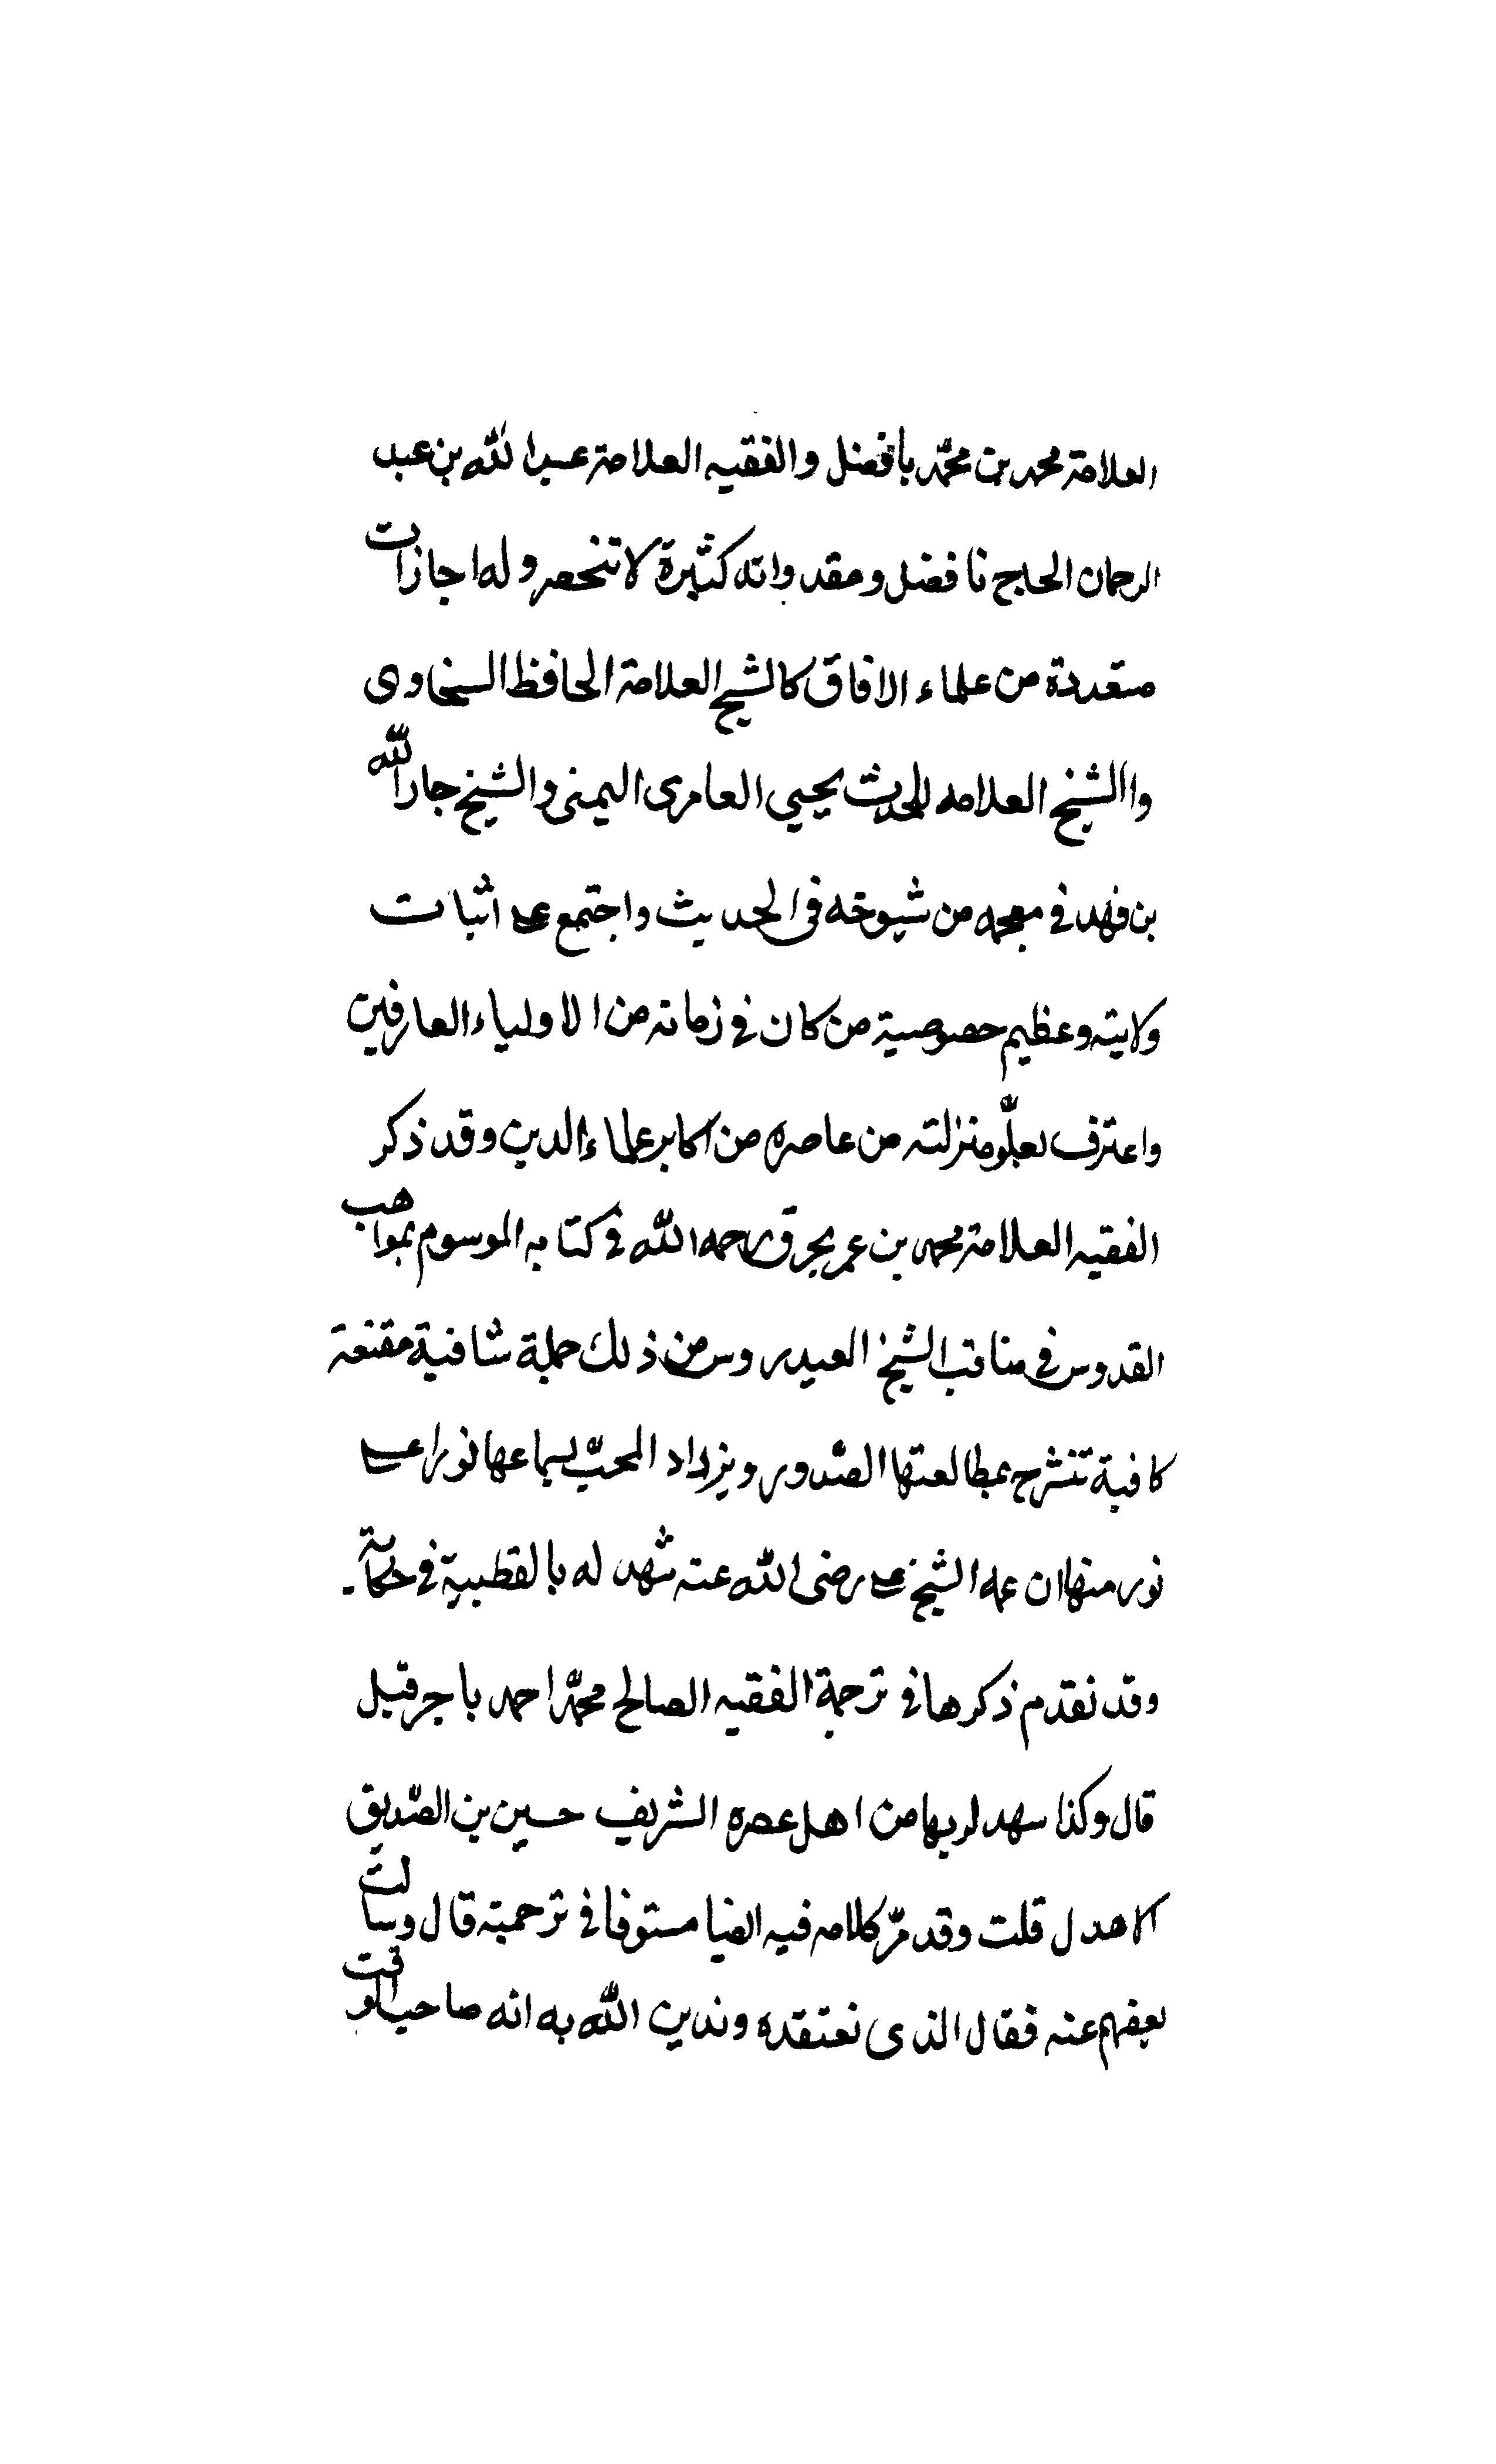 العلامة محمد بن محمّد بافضل والفقيه العلامة عبد الله بن عبد
الرحمان الحاج نافضل ومقدواته كثيرة لا تنحصر وله اجازات
متعددة من علماء الافاق كالشيخ العلامة الحافظ السخاوى
واالشيخ العلامه المحدث يحيي العامرى اليمنى والشيخ جار الله
بن فهد في معجمه من شيوخه في الحديث واجتمع على اثبات
ولايته وعظيم خصوصية من كان في زمانه من الاولياء العارفين
واعترف بعلّو منزلته من عاصره من اكابر علماء الدين وقد ذكر
الفقيه العلامة محمد بن عمر بحرق رحمه الله في كتابه الموسوم بمواهب
القدوس في مناقب الشيخ العيدروس من ذلك جملة شافية مقنعة
كافية تنشرح بمطالعتها الصّدور ويزداد المحبّ بسماعها نورا على
نور منها ان عمه الشيخ على رضى الله عنه شهد له بالقطبيّة في حكاية
وقد تقدم ذكرها في ترجمة الفقيه الصالح محمّد احمد باجرفيل
قال وكذا سهد له بها من اهل عصره الشريف حسين بن الصّديق
الاهدل قلت وقد مرّ كلامه فيه ايضا مستوفا في ترجمته قال وسالت
بعضهم عنه فقال الذى نعتقده وندين الله به انه صاحب الوقت